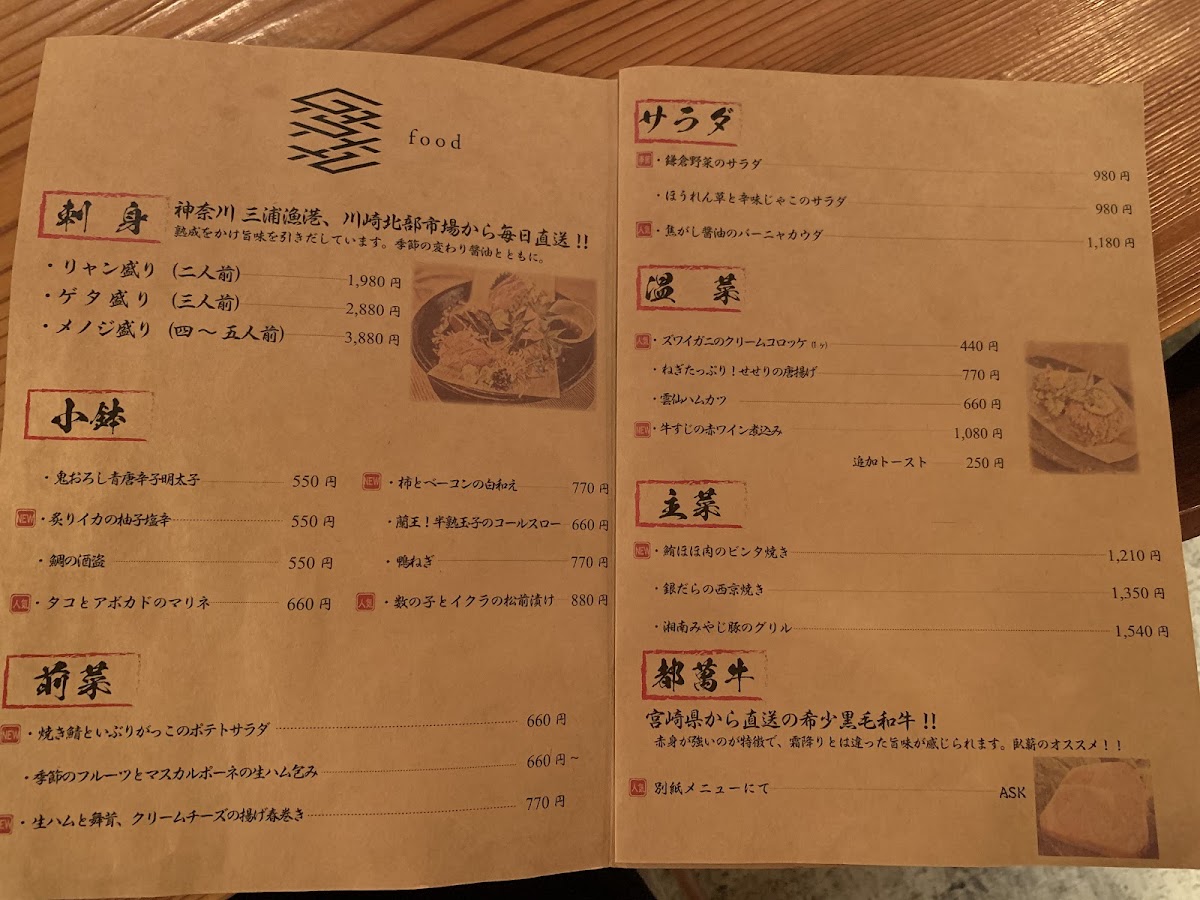 food
刺身
神奈川 三浦漁港、川崎北部市場から毎日直送!!
熟成をかけ旨味を引きだしています。季節の変わり醤油とともに。
・リャン盛り (二人前) 1,980 円
・ゲタ盛り (三人前) 2,880 円
・メノジ盛り (四〜五人前) 3,880 円
小鉢
・鬼おろし青唐辛子明太子 550 円
NEW ・炙りイカの柚子塩辛 550 円
・鯛の酒盗 550 円
人気 ・タコとアボカドのマリネ 660 円
NEW ・柿とベーコンの白和え 770 円
・蘭王!半熟玉子のコールスロー 660 円
・鴨ねぎ 770 円
人気 ・数の子とイクラの松前漬け 880 円
前菜
NEW ・焼き鯖といぶりがっこのポテトサラダ 660 円
・季節のフルーツとマスカルポーネの生ハム包み 660 円~
NEW ・生ハムと舞茸、クリームチーズの揚げ春巻き 770 円
サラダ
・鎌倉野菜のサラダ 980 円
・ほうれん草と辛味じゃこのサラダ 980 円
人気 ・焦がし醤油のバーニャカウダ 1,180 円
温菜
人気 ・ズワイガニのクリームコロッケ (1ヶ) 440 円
・ねぎたっぷり!せせりの唐揚げ 770 円
・雲仙ハムカツ 660 円
NEW ・牛すじの赤ワイン煮込み 1,080 円
追加トースト 250 円
主菜
NEW ・鮪ほほ肉のピンタ焼き 1,210 円
・銀だらの西京焼き 1,350 円
・湘南みやじ豚のグリル 1,540 円
都萬牛
宮崎県から直送の希少黒毛和牛!!
赤身が強いのが特徴で、霜降りとは違った旨味が感じられます。臥薪のオススメ!!
人気 ・別紙メニューにて ASK